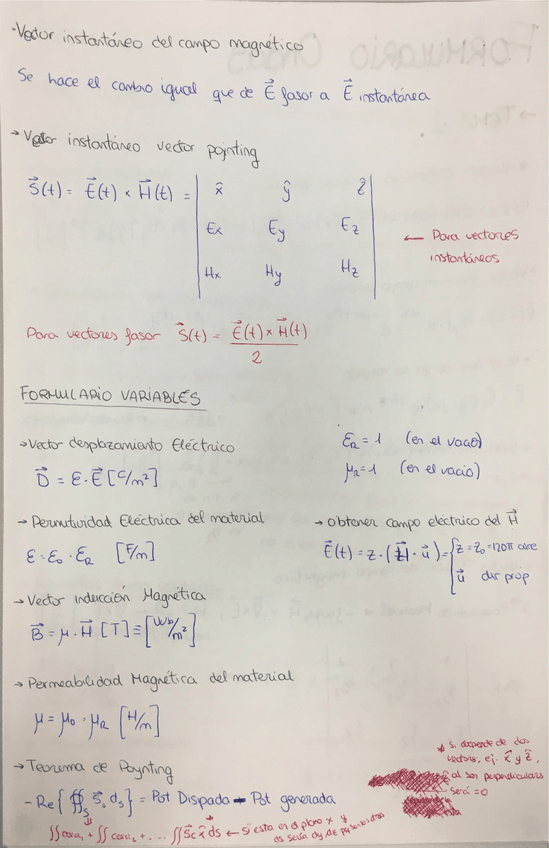 ·Vector instantáneo del campo magnético
Se hace el cambio igual que de E⃗ fasor a E⃗ instantánea
→ Valor instantáneo vector poynting
S⃗(t) = E⃗(t) × H⃗(t) = | x̂ ŷ ẑ |
| Ex Ey Ez |
| Hx Hy Hz |
← Para vectores
instantáneos
Para vectores fasor S⃗(t) = E⃗(t) × H⃗(t) / 2
FORMULARIO VARIABLES
→ Vector desplazamiento Eléctrico
D⃗ = ε · E⃗ [C/m²]
εR = 1 (en el vacío)
μR = 1 (en el vacío)
→ Permitividad Eléctrica del material
ε = ε₀ · εR [F/m]
→ Obtener campo eléctrico del H⃗
E⃗(t) = z · (H⃗ · u⃗) = { z = z₀ = 120π aire
u⃗ dir prop
→ Vector inducción Magnética
B⃗ = μ · H⃗ [T] ≡ [Wb/m²]
→ Permeabilidad Magnética del material
μ = μ₀ · μR [H/m]
→ Teorema de Poynting
- Re{∯s S⃗c ds} = Pot Dispada + Pot generada
∬cara₁ + ∬cara₂ + ... ∬S⃗c x̂ ds ← si esta en el plano x
ds sería dy dz
si depende de dos
vectores, ej. x̂ y ẑ,
al ser perpendiculares
será = 0